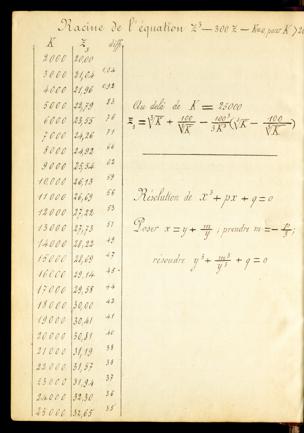 Racine de l'équation z³ — 300 z — K=0, pour K > 20
K z₃ diff.
2000 20,00
3000 21,04 1,04
4000 21,96 0,92
5000 22,79 83
6000 23,55 76
7000 24,26 71
8000 24,92 66
9000 25,54 62
10,000 26,13 59
11000 26,69 56
12000 27,22 53
13000 27,73 51
14000 28,22 49
15000 28,69 47
16000 29,14 45
17000 29,58 44
18000 30,00 42
19000 30,41 41
20000 30,81 40
21000 31,19 38
22000 31,57 38
23000 31,94 37
24000 32,30 36
25000 32,65 35
Au delà de K = 25000
z₃ = ∛K + 100/∛K — 100³/3K³ (∛K — 100/∛K)
Résolution de x³ + px + q = 0
Poser x = y + m/y ; prendre m = — p/3 ;
résoudre y³ + m³/y³ + q = 0